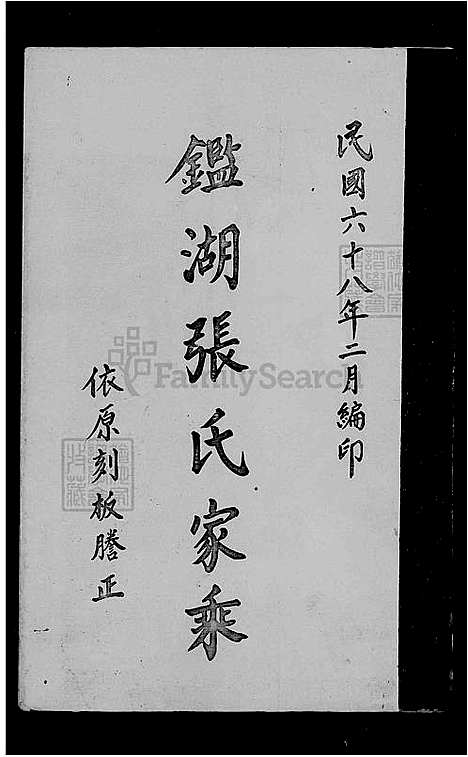 民國六十八年二月編印
鑑湖張氏家乘
依原刻板謄正
FamilySearch